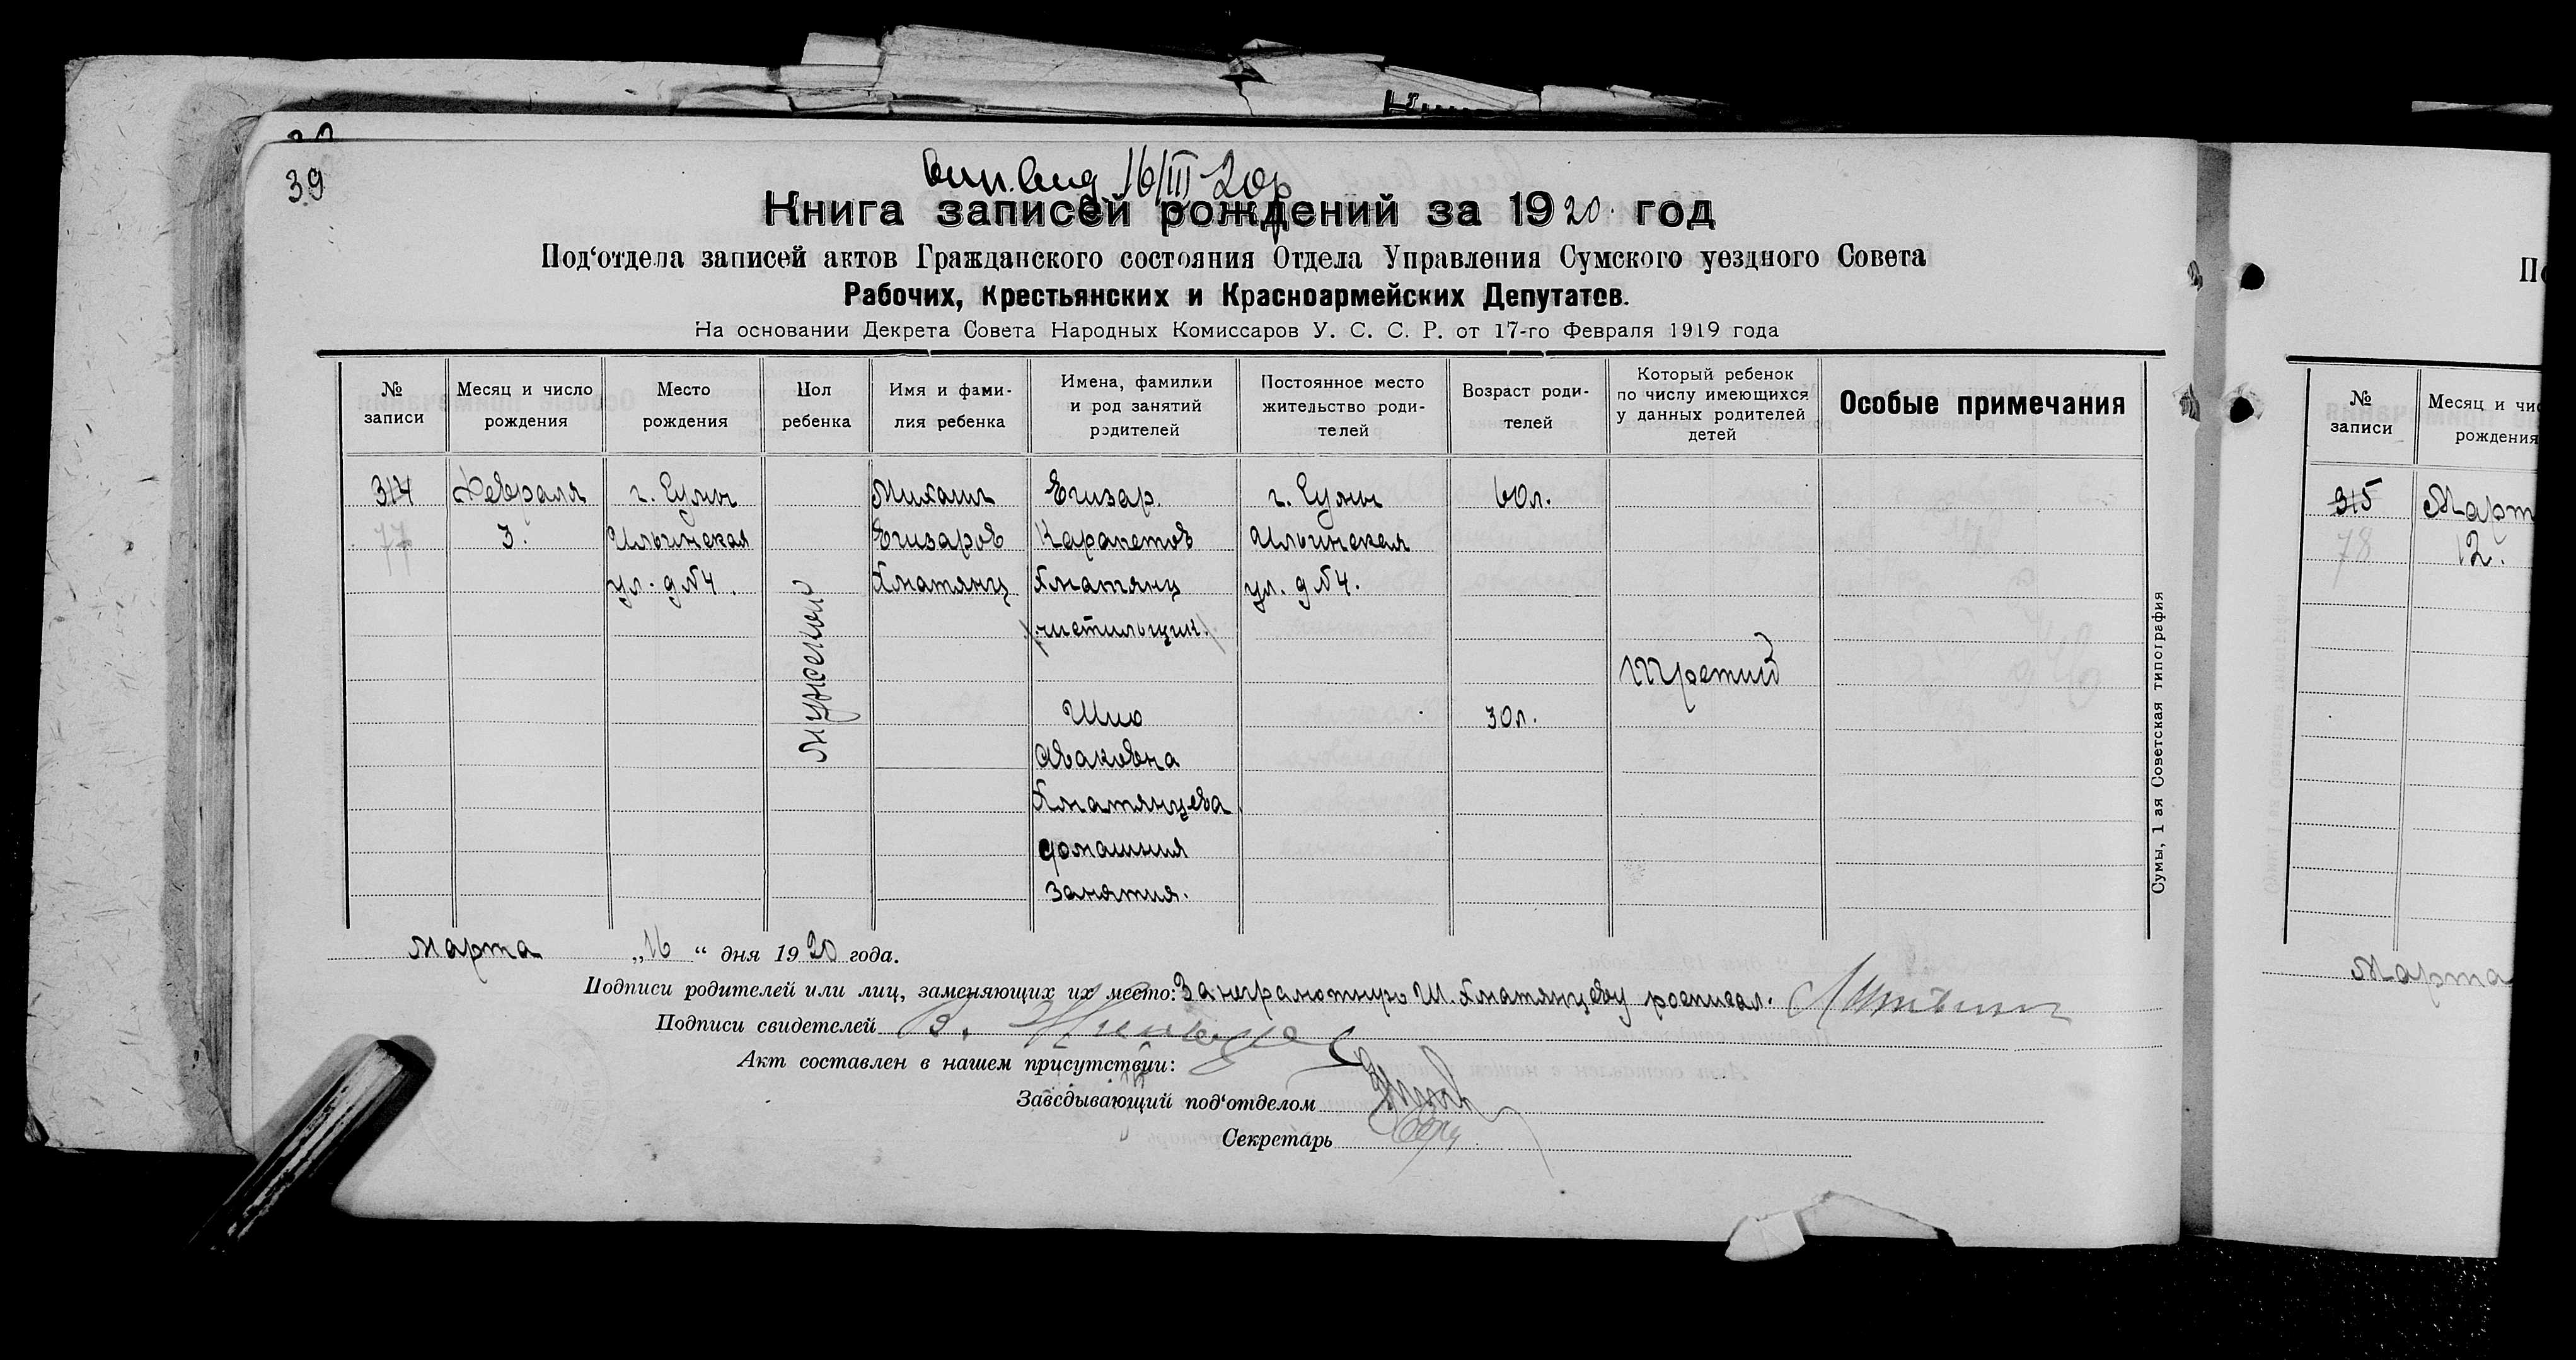 39
16/III 20г
Книга записей рождений за 1920. год
Под‘отдела записей актов Гражданского состояния Отдела Управления Сумского уездного Совета
Рабочих, Крестьянских и Красноармейских Депутатов.
На основании Декрета Совета Народных Комиссаров У. С. С. Р. от 17-го Февраля 1919 года
№ записи
Месяц и число рождения
Место рождения
Пол ребенка
Имя и фами-
лия ребенка
Имена, фамилии
и род занятий
родителей
Постоянное место
жительство роди-
телей
Возраст роди-
телей
Который ребенок
по числу имеющихся
у данных родителей
детей
Особые примечания
314
77
Февраля
3.
г. Сумы
Ильинская
ул. д №4.
Мужской
Михаил
Егизаров
Хматянц
Егизар.
Карапетов
Хматянц
(чистильщик)
Шио
Аваковна
Хматянцева
домашния
занятия.
г. Сумы
Ильинская
ул. д №4.
60л.
30л.
Третий
Сумы, 1 ая Советская типография
Марта „16“ дня 1920 года.
Подписи родителей или лиц, заменяющих их место: За неграмотную Ш. Хматянцеву росписал.
Подписи свидетелей В.
Акт составлен в нашем присутствии:
Заведывающий под‘отделом
Секретарь
№
записи
315
78
Месяц и чи
рождения
Март
12.
Марта